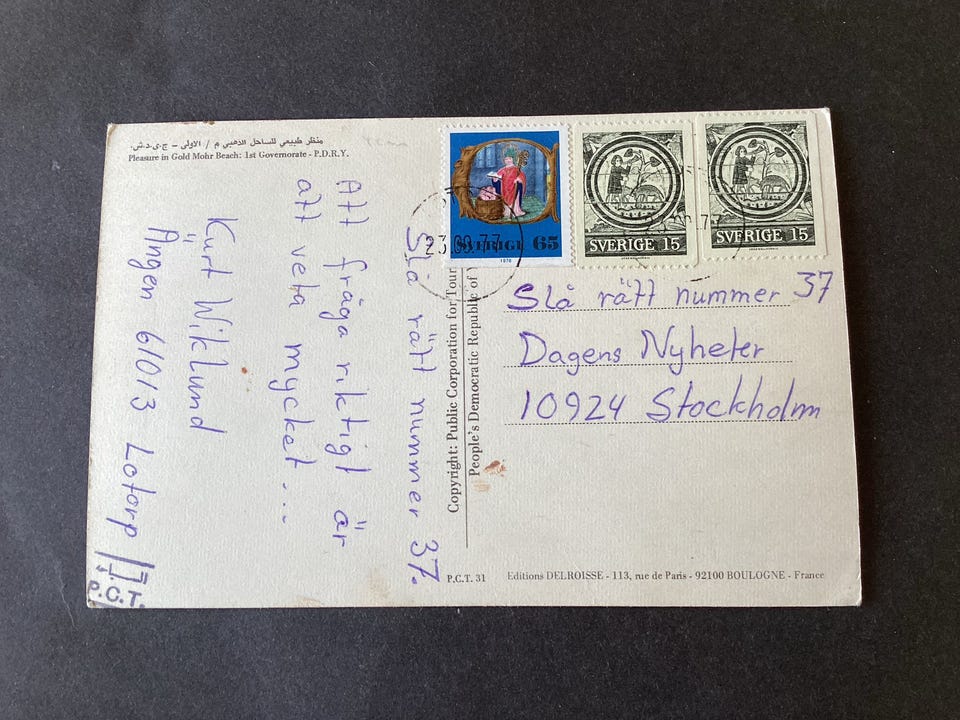 منظر طبيعي للساحل الذهبي م / الاولى - ج.ي.د.ش.
Pleasure in Gold Mohr Beach: 1st Governorate - P.D.R.Y.
Slå rätt nummer 37.
Att fråga riktigt är
att veta mycket...
Kurt Wiklund
Ängen 61013 Lotorp
P.C.T.
Copyright: Public Corporation for Tour
People's Democratic Republic of
SVERIGE 65
1976
SVERIGE 15
SVERIGE 15
23.09.77
Slå rätt nummer 37
Dagens Nyheter
10924 Stockholm
P.C.T. 31
Editions DELROISSE - 113, rue de Paris - 92100 BOULOGNE - France